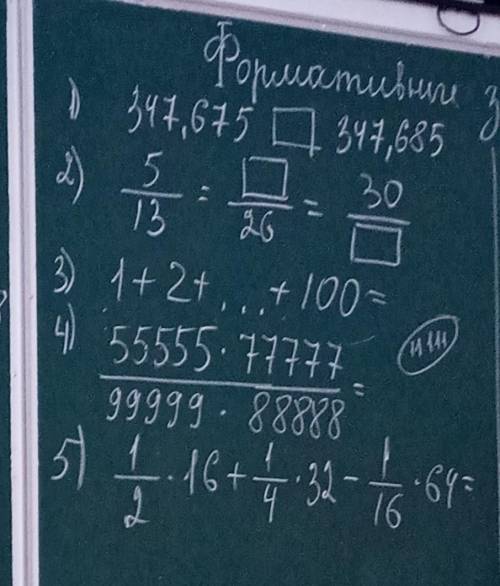 Формативние
1) 347,675 □ 347,685
2) 5/13 = □/26 = 30/□
3) 1+2+...+100=
4) 55555·77777/99999·88888 =
5) 1/2·16+1/4·32-1/16·64=